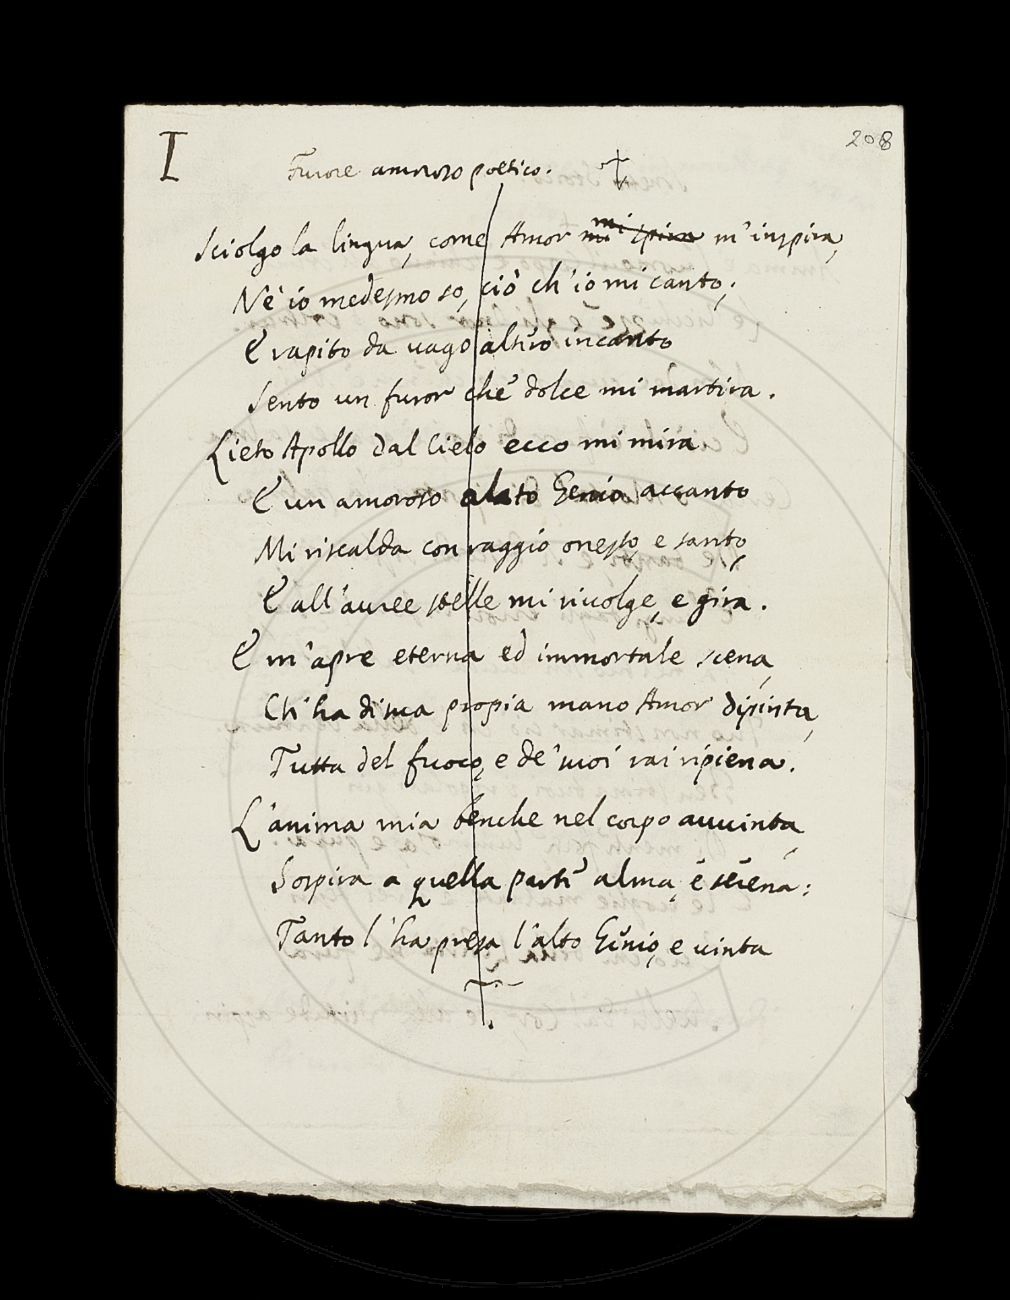 I
208
Furore amoroso poetico.
Sciolgo la lingua, come Amor mi spira m'inspira,
Ne' io medesmo so, ciò ch'io mi canto;
E rapito da vago altero incanto
Sento un furor che dolce mi martira.
Lieto Apollo dal Cielo ecco mi mira
E un amoroso alato Genio accanto
Mi riscalda con raggio onesto, e santo,
E all'auree stelle mi rivolge, e gira.
E m'apre eterna ed immortale scena,
Ch'ha di sua propia mano Amor dipinta,
Tutta del fuoco, e de' suoi rai ripiena.
L'anima mia benche nel corpo avvinta,
Sospira a quella parte alma, e serena:
Tanto l'ha presa l'alto Genio, e vinta